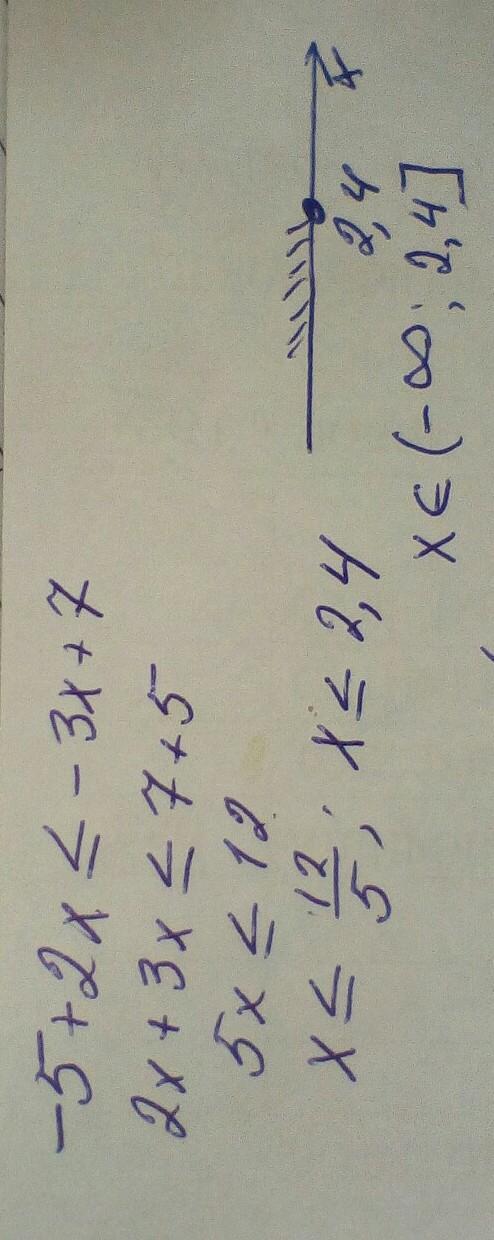 -5+2x ≤ -3x+7
2x+3x ≤ 7+5
5x ≤ 12
x ≤ 12/5; x ≤ 2,4
x
2,4
x ∈ (-∞; 2,4]